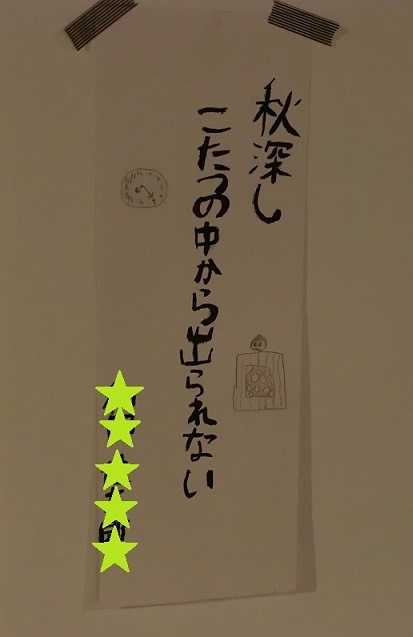 秋深し
こたつの中から出られない